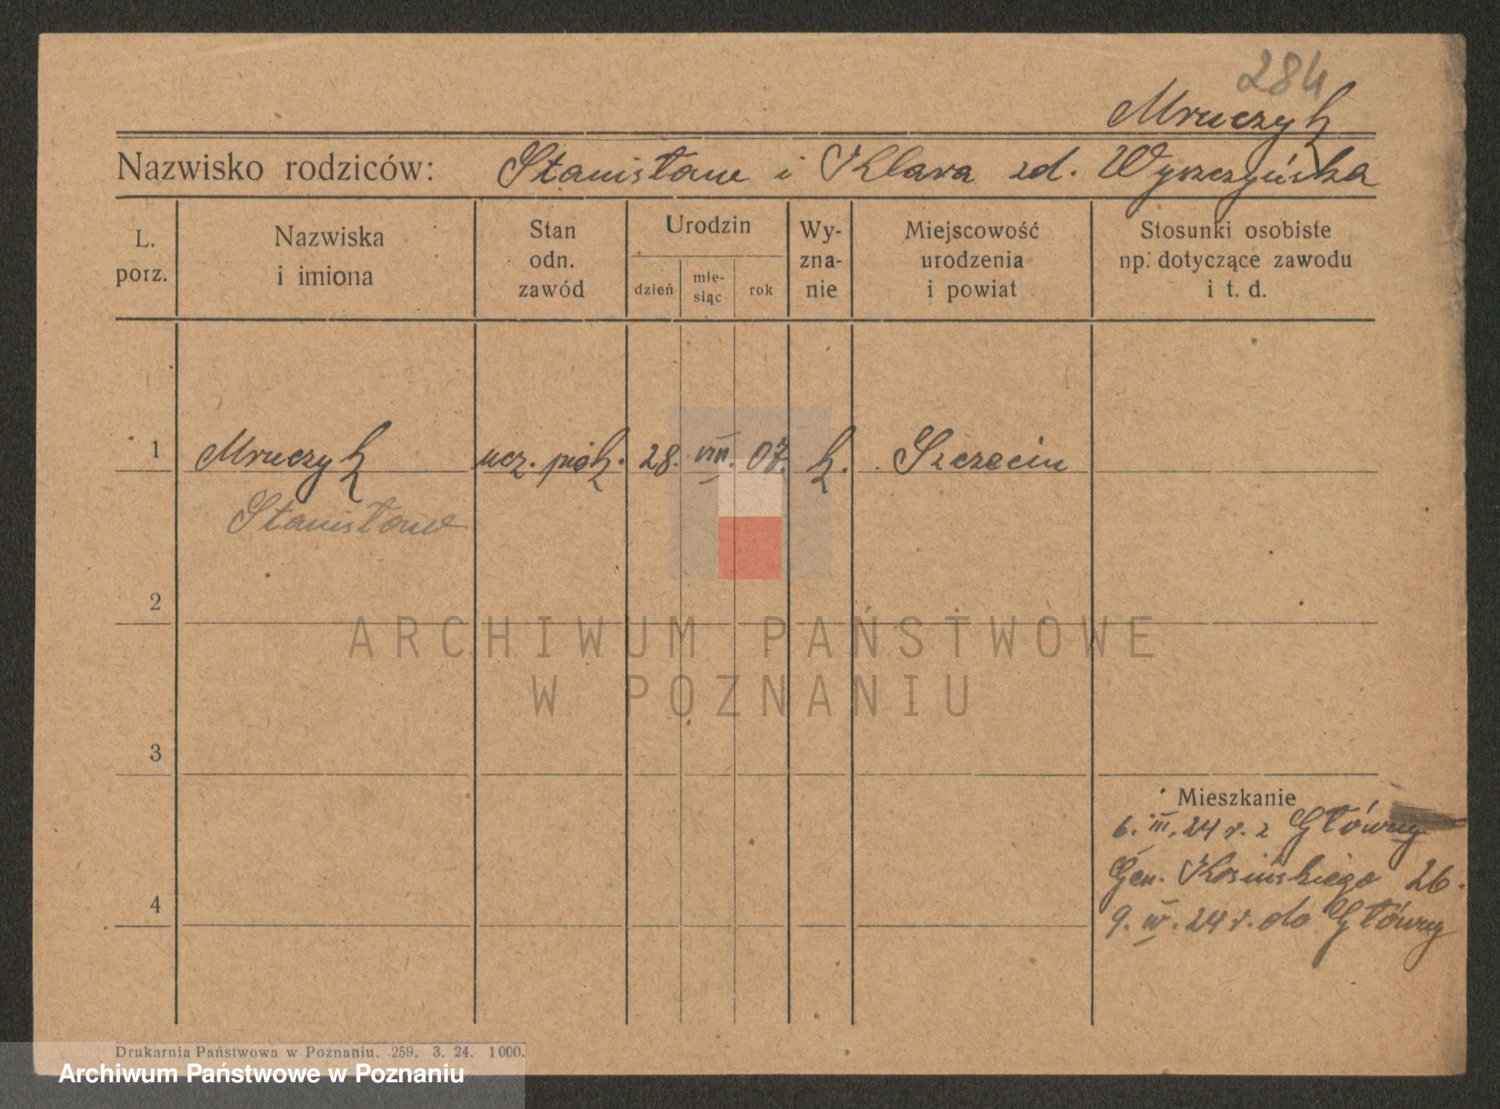 284
Mruczyk
Nazwisko rodziców: Stanisław i Klara zd. Wyszczyńska
L. porz.
Nazwiska i imiona
Stan odn. zawód
Urodzin
dzień
mie-
siąc
rok
Wy-
zna-
nie
Miejscowość
urodzenia
i powiat
Stosunki osobiste
np. dotyczące zawodu
i t. d.
1 Mruczyk ucz. piek. 28. VIII. 07. k. Szczecin
Stanisław
2
ARCHIWUM PAŃSTWOWE
W POZNANIU
3
Mieszkanie
6. III. 24 r. z Główny
Gen. Kosińskiego 26.
4
9. IV. 24 r. do Główny
Drukarnia Państwowa w Poznaniu. 259. 3. 24. 1000.
Archiwum Państwowe w Poznaniu